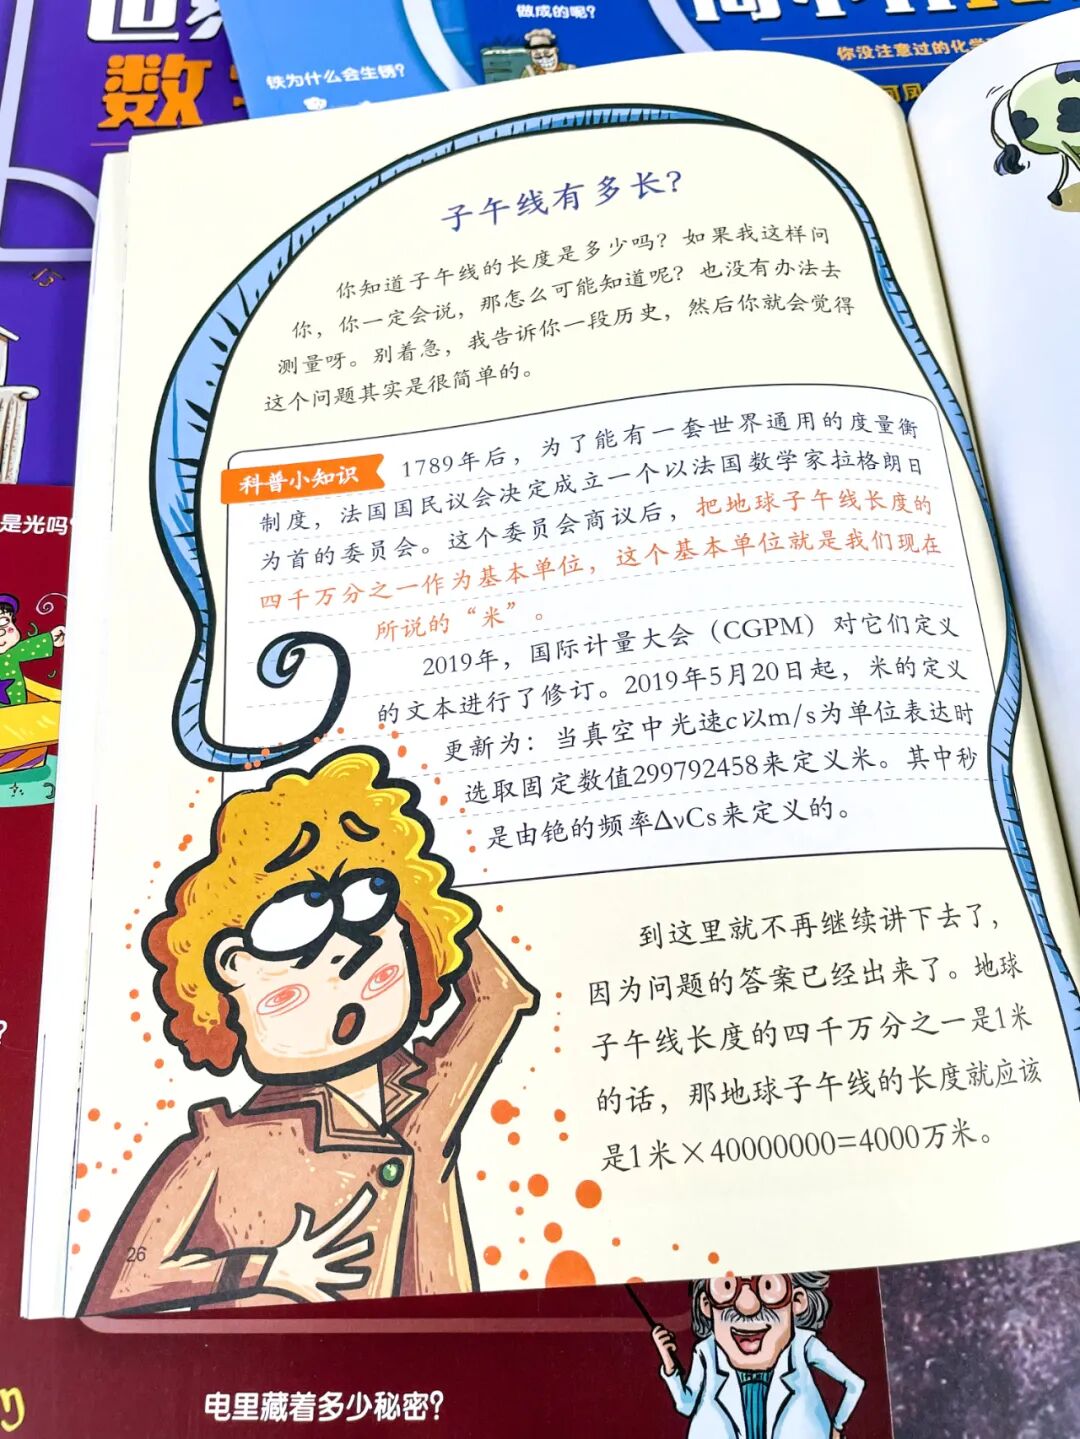 做成的呢？
铁为什么会生锈？
你没注意过的化学
数
是光吗？
子午线有多长？
你知道子午线的长度是多少吗？如果我这样问
你，你一定会说，那怎么可能知道呢？也没有办法去
测量呀。别着急，我告诉你一段历史，然后你就会觉得
这个问题其实是很简单的。
科普小知识
1789年后，为了能有一套世界通用的度量衡
制度，法国国民议会决定成立一个以法国数学家拉格朗日
为首的委员会。这个委员会商议后，把地球子午线长度的
四千万分之一作为基本单位，这个基本单位就是我们现在
所说的“米”。
2019年，国际计量大会（CGPM）对它们定义
的文本进行了修订。2019年5月20日起，米的定义
更新为：当真空中光速c以m/s为单位表达时
选取固定数值299792458来定义米。其中秒
是由铯的频率ΔνCs来定义的。
到这里就不再继续讲下去了，
因为问题的答案已经出来了。地球
子午线长度的四千万分之一是1米
的话，那地球子午线的长度就应该
是1米×40000000=4000万米。
26
电里藏着多少秘密？